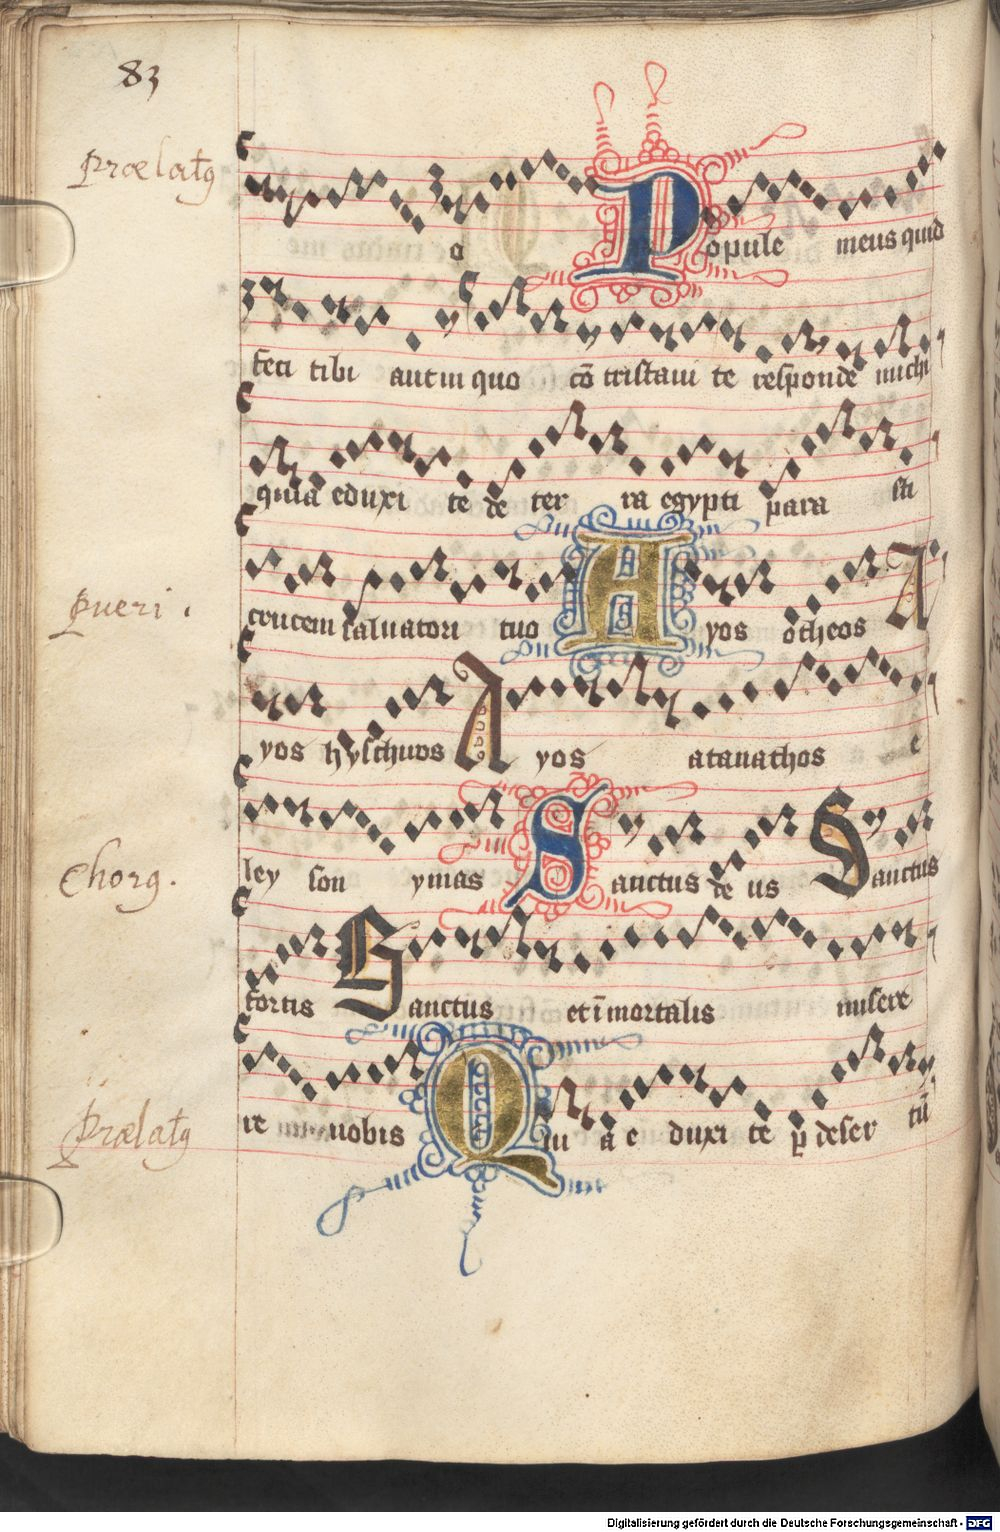 83
Prælatꝯ
o Popule meus quid
feci tibi aut in quo cõ tristaui te responde michi
quia eduxi te de ter ra egypti para sti
crucem saluatori tuo Ayos otheos A
Pueri.
yos hyschuos Ayos atanathos e
ley son ymas Sanctus de us Sanctus
Chorꝯ.
fortis Sanctus et ĩmortalis misere
re nobis Qui a e duxi te ꝑ deser tũ
Prælatꝯ
Digitalisierung gefördert durch die Deutsche Forschungsgemeinschaft - DFG